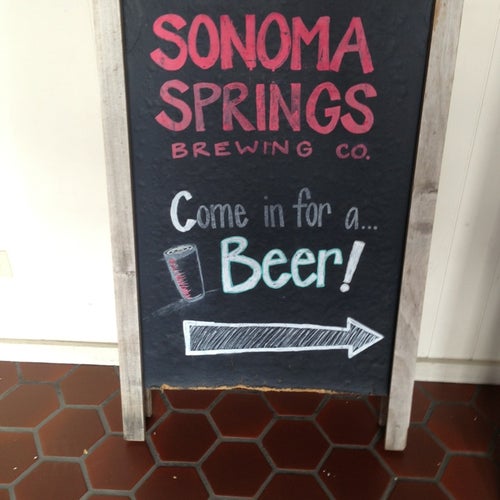 SONOMA
SPRINGS
BREWING CO.
Come in for a...
Beer!